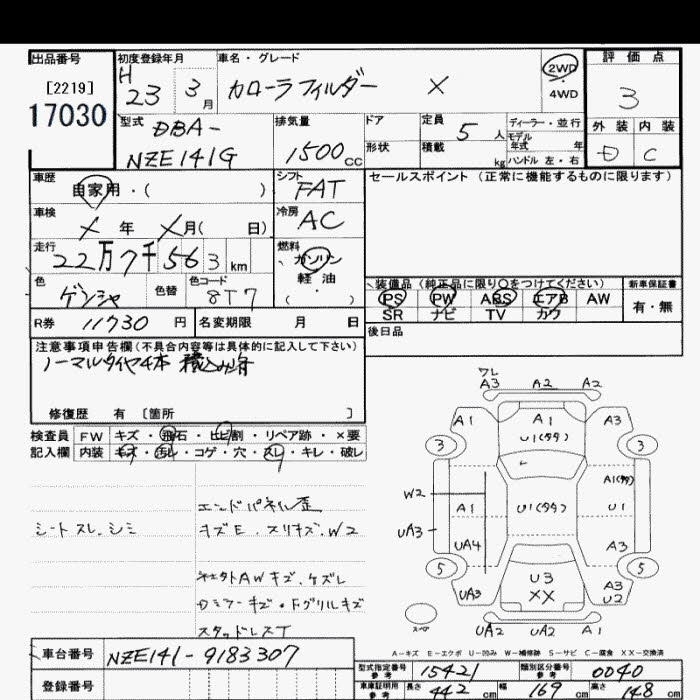 出品番号
[2219]
17030
初度登録年月
H 23 3月
車名・グレード
カローラフィルダー X
2WD
4WD
評価点
3
外装 内装
D C
型式
DBA-
NZE141G
排気量
1500cc
ドア
形状
定員 5人
積載 kg
ディーラー・並行
モデル年式 年
ハンドル 左・右
車歴
自家用・( )
シフト
FAT
セールスポイント (正常に機能するものに限ります)
車検
X年 X月( 日)
冷房
AC
走行
22万7千563km
燃料
ガソリン
軽油
( ・ )
色
ゲンシャ
色替
色コード
8T7
装備品 (純正品に限り〇をつけてください)
新車保証書
PS PW ABS エアB AW
SR ナビ TV カワ
有・無
R券 11730円
名変期限 月 日
後日品
注意事項申告欄(不具合内容等は具体的に記入して下さい)
ノーマルタイヤ4本 積込み済
修復歴 有 [箇所 ]
検査員 FW キズ・飛石・ヒビ割・リペア跡・×要
記入欄 内装 キズ・汚レ・コゲ・穴・スレ・キレ・破レ
シートスレ、シミ
エンドパネル歪
キズE、スリキズ、W2
社外AWキズ、ケズレ
Dミラーキズ・Fグリルキズ
スタッドレスT
ワレ
A3 A2 A2
A1 A1 A3
U1(タタ)
3 3
W2
A1(タタ)
A1 U1(タタ) U1
UA3
UA4 A3
5 5
UA3 U3 A3
XX U2
スペア
UA2 UA2 A1
A-キズ E-エクボ U-凹み W-補修跡 S-サビ C-腐食 XX-交換済
車台番号 NZE141-9183307
登録番号
型式指定番号 参考 15421
類別区分番号 参考 0040
車庫証明用 参考 長さ 442cm 幅 169cm 高さ 148cm